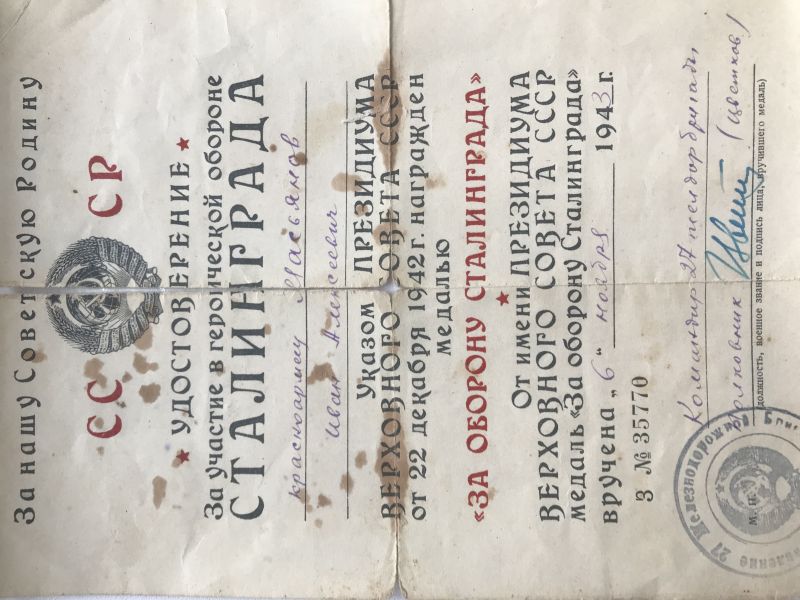 За нашу Советскую Родину
СС СР
УДОСТОВЕРЕНИЕ
За участие в героической обороне
СТАЛИНГРАДА
красноармеец Касьянов
Иван Алексеевич
Указом ПРЕЗИДИУМА
ВЕРХОВНОГО СОВЕТА СССР
от 22 декабря 1942 г. награжден
медалью
«ЗА ОБОРОНУ СТАЛИНГРАДА»
От имени ПРЕЗИДИУМА
ВЕРХОВНОГО СОВЕТА СССР
медаль «За оборону Сталинграда»
вручена „6“ ноября 1943 г.
З № 35770
Командир 27 желдорбригады
полковник (Цветков)
(должность, военное звание и подпись лица, вручившего медаль)
М. П.
27 Железнодорожной